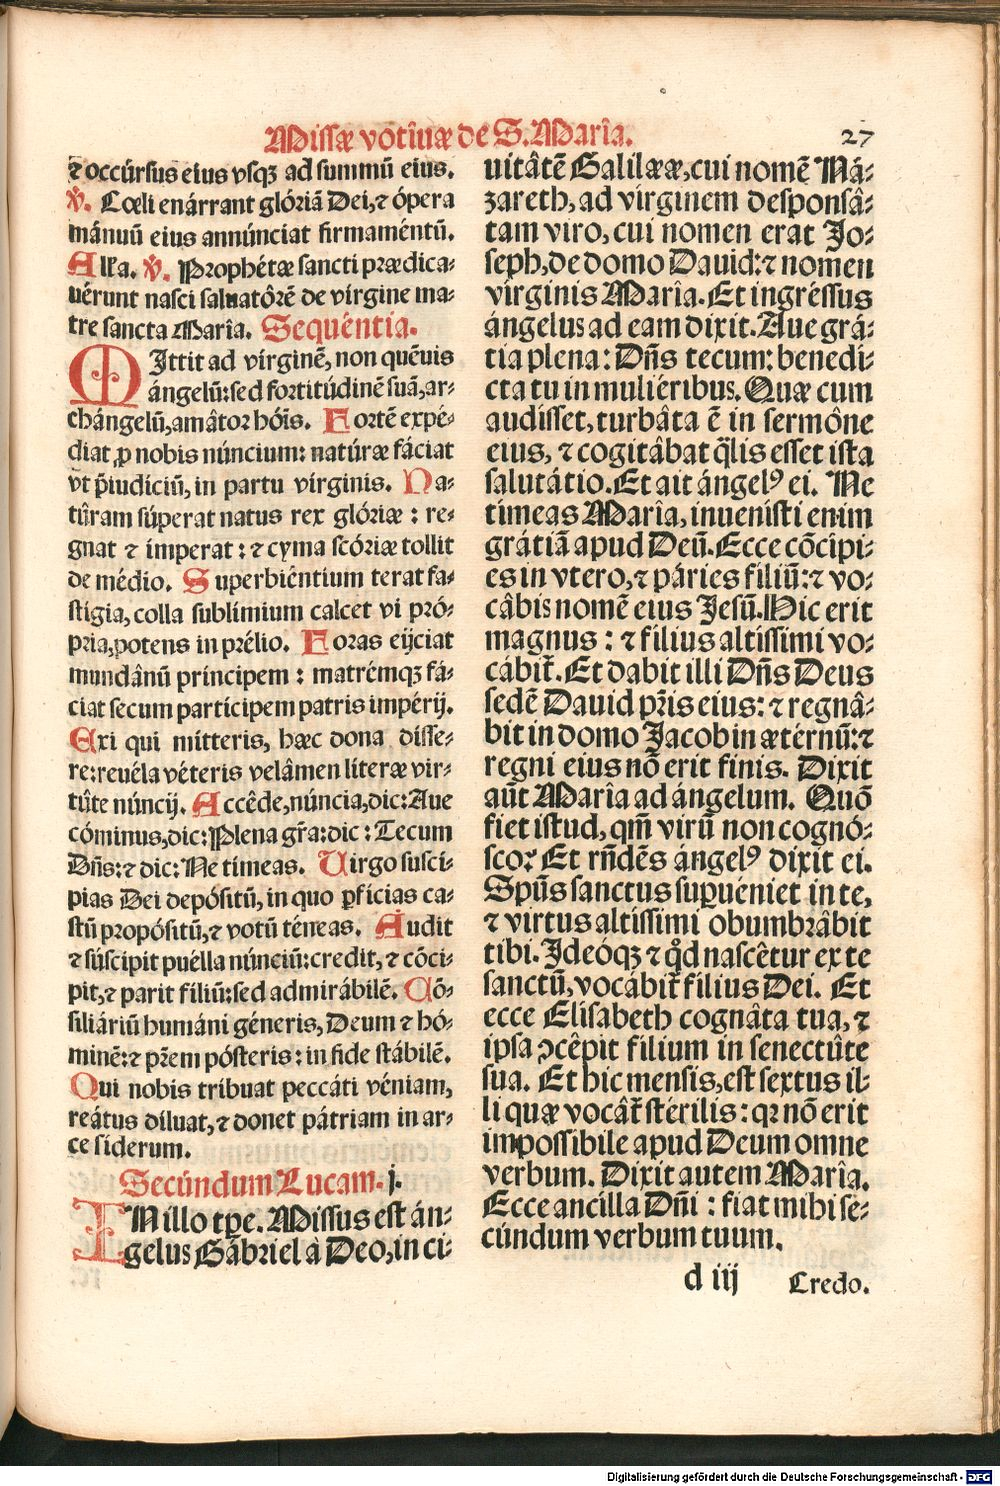 Missæ votîuæ de S. Marîa.
27
⁊ occúrsus eius vsqꝫ ad summū eius.
℣. Cœli enárrant glóriā Dei, ⁊ ópera
mánuū eius annúnciat firmaméntū.
Alla. ℣. Prophétæ sancti prædica⸗
uérunt nasci saluatôrē de vírgine ma⸗
tre sancta Marîa. Sequéntia.
MIttit ad vírginē, non quēuis
ángelū: sed fortitúdinē suā, ar⸗
chángelū, amâtor hóis. Fortē expé⸗
diat ꝓ nobis núncium: natúræ fáciat
vt p̄iudíciū, in partu vírginis. Na⸗
tûram súperat natus rex glóriæ: re⸗
gnat ⁊ ímperat: ⁊ cyma scóriæ tollit
de médio. Superbiêntium terat fa⸗
stígia, colla sublímium calcet vi pró⸗
pria, potens in prélio. Foras eijciat
mundânū príncipem: matrémqꝫ fá⸗
ciat secum partícipem patris impérij.
Exi qui mítteris, hæc dona disse⸗
re: reuéla véteris velâmen líteræ vir⸗
tûte núncij. Accêde, núncia, dic: Aue
cóminus, dic: Plena gr̄a: dic: Tecum
Dn̄s: ⁊ dic: Ne tímeas. Uirgo susci⸗
pias Dei depósitū, in quo ꝑfícias ca⸗
stū propósitū, ⁊ votū téneas. Audit
⁊ súscipit puélla núnciū: credit, ⁊ cōci⸗
pit, ⁊ parit fíliū: sed admirábilē. Cō⸗
siliáriū humáni géneris, Deum ⁊ hó⸗
minē: ⁊ pr̄em pósteris: in fide stábilē.
Qui nobis tríbuat peccáti véniam,
reátus díluat, ⁊ donet pátriam in ar⸗
ce síderum.
Secúndum Lucam. j.
IN illo tꝑe. Missus est án⸗
gelus Gábriel à Deo, in ci⸗
uitâtē Galilææ, cui nomē Ná⸗
zareth, ad vírginem desponsâ⸗
tam viro, cui nomen erat Jo⸗
seph, de domo Dauid: ⁊ nomen
vírginis Marîa. Et ingréssus
ángelus ad eam dixit. Aue grá⸗
tia plena: Dn̄s tecum: benedí⸗
cta tu in muliéribus. Quæ cum
audísset, turbâta ē in sermône
eius, ⁊ cogitâbat q̄lis esset ista
salutátio. Et ait ángelꝰ ei. Ne
tímeas Marîa, inuenísti enim
grátiā apud Deū. Ecce cōcípi⸗
es in vtero, ⁊ páries fíliū: ⁊ vo⸗
câbis nomē eius Jesū. Hic erit
magnus: ⁊ fílius altíssimi vo⸗
cábit̄. Et dabit illi Dn̄s Deus
sedē Dauid pr̄is eius: ⁊ regnâ⸗
bit in domo Jacob in ætérnū: ⁊
regni eius nō erit finis. Dixit
aūt Marîa ad ángelum. Quō
fiet istud, qm̄ virū non cognó⸗
sco? Et rn̄dēs ángelꝰ dixit ei.
Spūs sanctus supuéniet in te,
⁊ virtus altíssimi obumbrâbit
tibi. Ideóqꝫ ⁊ qd̓ nascêtur ex te
sanctū, vocábit̄ fílius Dei. Et
ecce Elísabeth cognâta tua, ⁊
ipsa ↄcêpit fílium in senectûte
sua. Et hic mensis, est sextus il⸗
li quæ vocát̄ stérilis: qꝛ nō erit
impossíbile apud Deum omne
verbum. Dixit autem Marîa.
Ecce ancílla Dn̄i: fiat mihi se⸗
cúndum verbum tuum.
d iij
Credo.
Digitalisierung gefördert durch die Deutsche Forschungsgemeinschaft - DFG